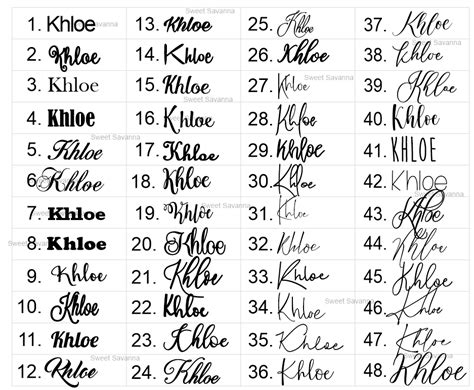 1. Khloe 13. Khloe 25. Khloe 37. Khloe
2. Khloe 14. Khloe 26. Khloe 38. Khloe
3. Khloe 15. Khloe 27. Khloe 39. Khloe
4. Khloe 16. Khloe 28. Khloe 40. Khloe
5. Khloe 17. Khloe 29. Khloe 41. KHLOE
6. Khloe 18. Khloe 30. Khloe 42. Khloe
7. Khloe 19. Khloe 31. Khloe 43. Khloe
8. Khloe 20. Khloe 32. Khloe 44. Khloe
9. Khloe 21. Khloe 33. Khloe 45. Khloe
10. Khloe 22. Khloe 34. Khloe 46. Khloe
11. Khloe 23. Khloe 35. Khloe 47. Khloe
12. Khloe 24. Khloe 36. Khloe 48. Khloe
Sweet Savanna
Sweet Savanna
Sweet Savanna
Sweet Savanna
Sweet Savanna
Sweet Savanna
Sweet Savanna
Sweet Savanna